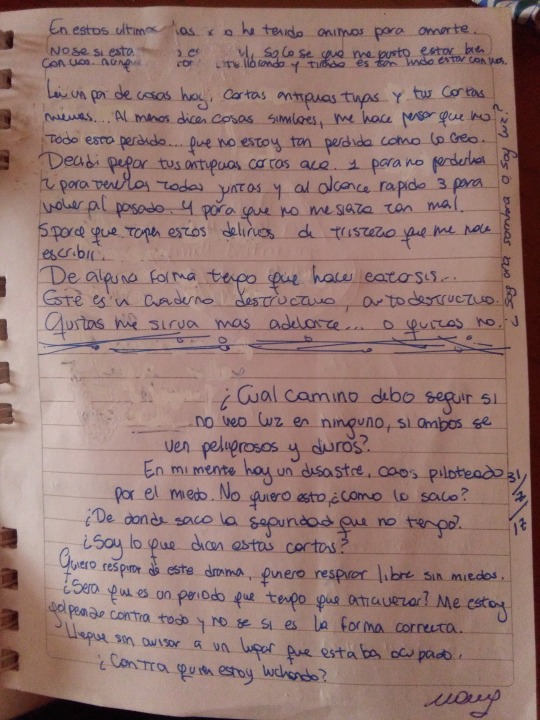 En estos ultimos dias no he tenido animos para amarte.
No se si esta solo se que me gusto estar bien
con vos. aunque llorando y tirado es tan lindo estar con vos.
Lei un par de cosas hoy, cartas antiguas tuyas y tus cartas
nuevas... Al menos dicen cosas similares, me hace pensar que no
todo esta perdido... que no estoy tan perdida como lo creo.
Decidi pegar tus antiguas cartas aca. 1 para no perderlas
2 para tenerlas todas juntas y al alcance rapido 3 para
volver al pasado. 4 para que no me sienta tan mal.
5 para que tapen estos delirios de tristeza que me hace
escribir.
De alguna forma tengo que hacer catarsis...
Este es un cuaderno destructivo, autodestructivo.
Quizas me sirva mas adelante... o quizas no.
¿Soy otra sombra o soy luz?
¿Cual camino debo seguir si
no veo luz en ninguno, si ambos se
ven peligrosos y duros?
En mi mente hay un desastre, caos piloteado
por el miedo. No quiero esto, ¿como lo saco?
¿De donde saco la seguridad que no tengo?
¿Soy lo que dicen estas cartas?
Quiero respirar de este drama, quiero respirar libre sin miedos.
¿Sera que es un periodo que tengo que atravezar? Me estoy
golpeando contra todo y no se si es la forma correcta.
Llegue sin avisar a un lugar que estaba ocupado.
¿Contra quien estoy luchando?
31/7/17